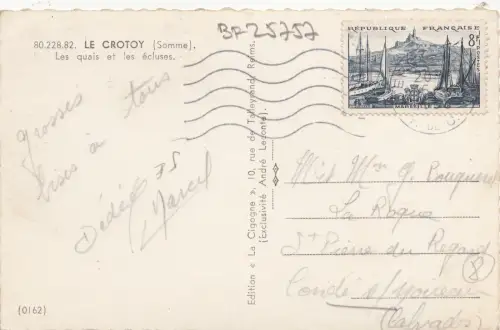 BF25757
80.228.82. LE CROTOY (Somme).
Les quais et les écluses.
RÉPUBLIQUE FRANÇAISE
8F
POSTES
MARSEILLE
grosses
bises à tous
Dédé
Marcel
Edition « La Cigogne », 10, rue de Talleyrand, Reims.
(Exclusivité André Leconte)
Mr et Mme G.
La Roque
St Pierre du Regard
Condé s/ Noireau
(Calvados)
8
(0162)